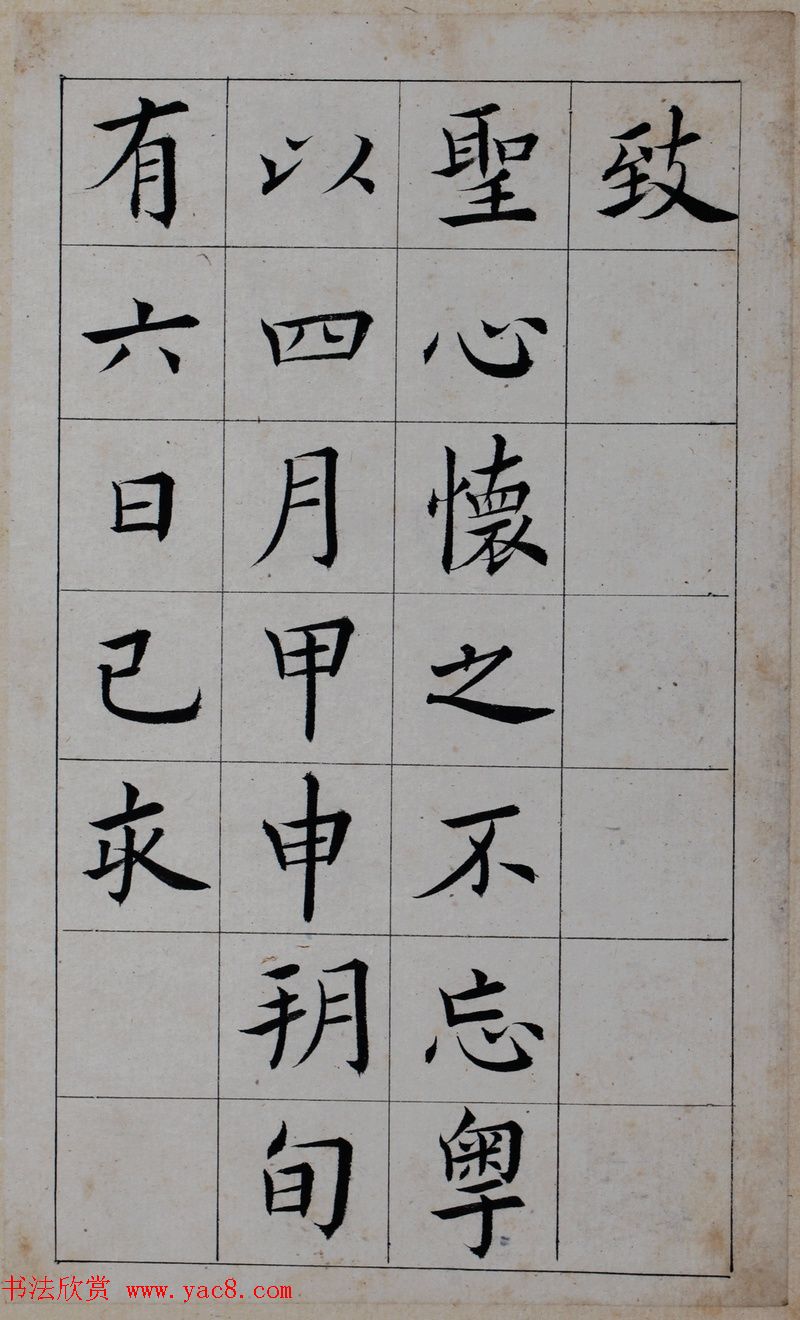 致
聖心懷之不忘粵
以四月甲申朔旬
有六日己亥
书法欣赏 www.yac8.com